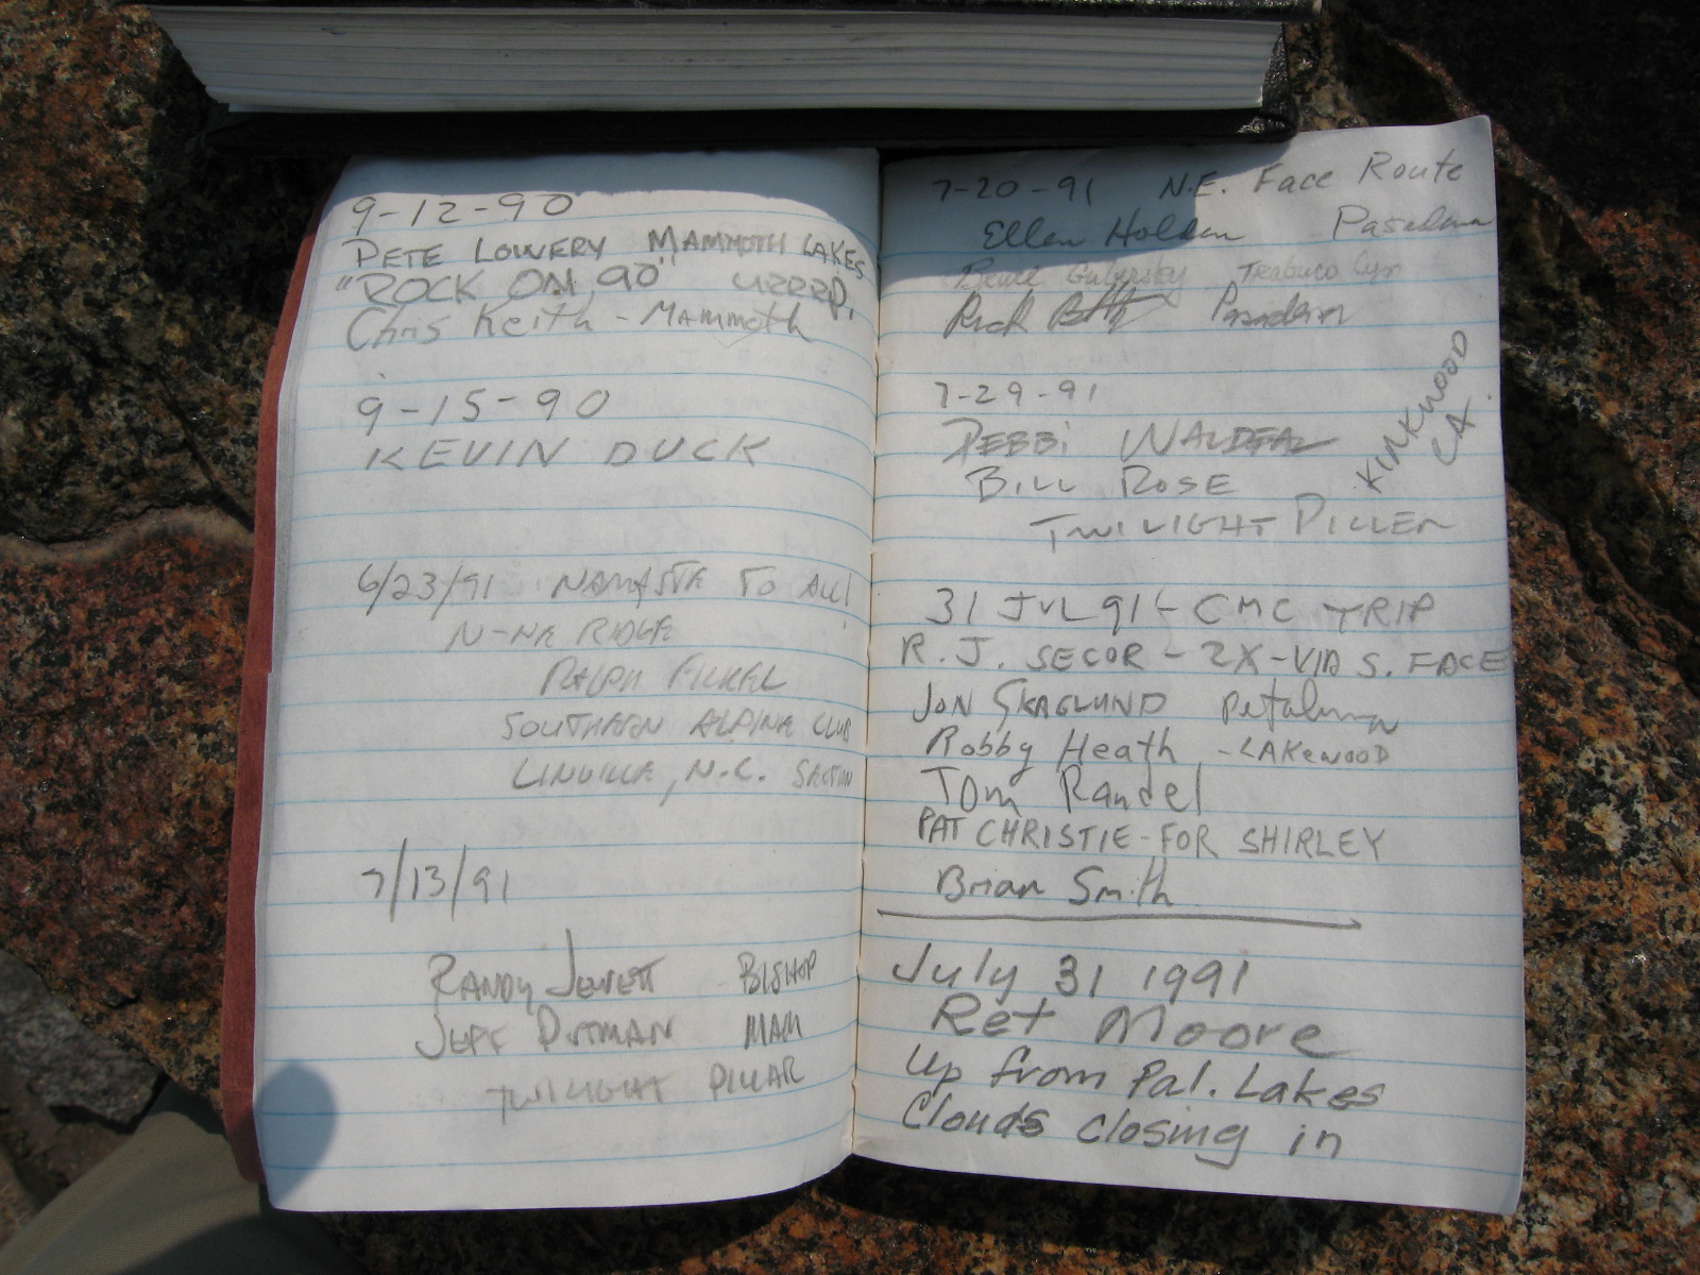 9-12-90
PETE LOWERY MAMMOTH LAKES
"ROCK ON 90"
Chris Keith - MAMMOTH
9-15-90
KEVIN DUCK
6/23/91 NAMASTE TO ALL!
N-NE RIDGE
RALPH FICKEL
SOUTHERN ALPINE CLUB
LINVILLE, N.C. SECTION
7/13/91
RANDY JEWETT BISHOP
JEFF PUTMAN MAM
TWILIGHT PILLAR
7-20-91 N.E. Face Route
Ellen Holden Pasadena
Trabuco Cyn
Rick Pasadena
7-29-91
DEBBi
BILL ROSE
KIRKWOOD CA.
TWILIGHT PILLER
31 JUL 91 - CMC TRIP
R. J. SECOR - 2X - VIA S. FACE
JON SKAGLUND Petaluma
Robby Heath - LAKEWOOD
Tom Randel
PAT CHRISTIE - FOR SHIRLEY
Brian Smith
July 31 1991
Ret Moore
Up from Pal. Lakes
Clouds closing in